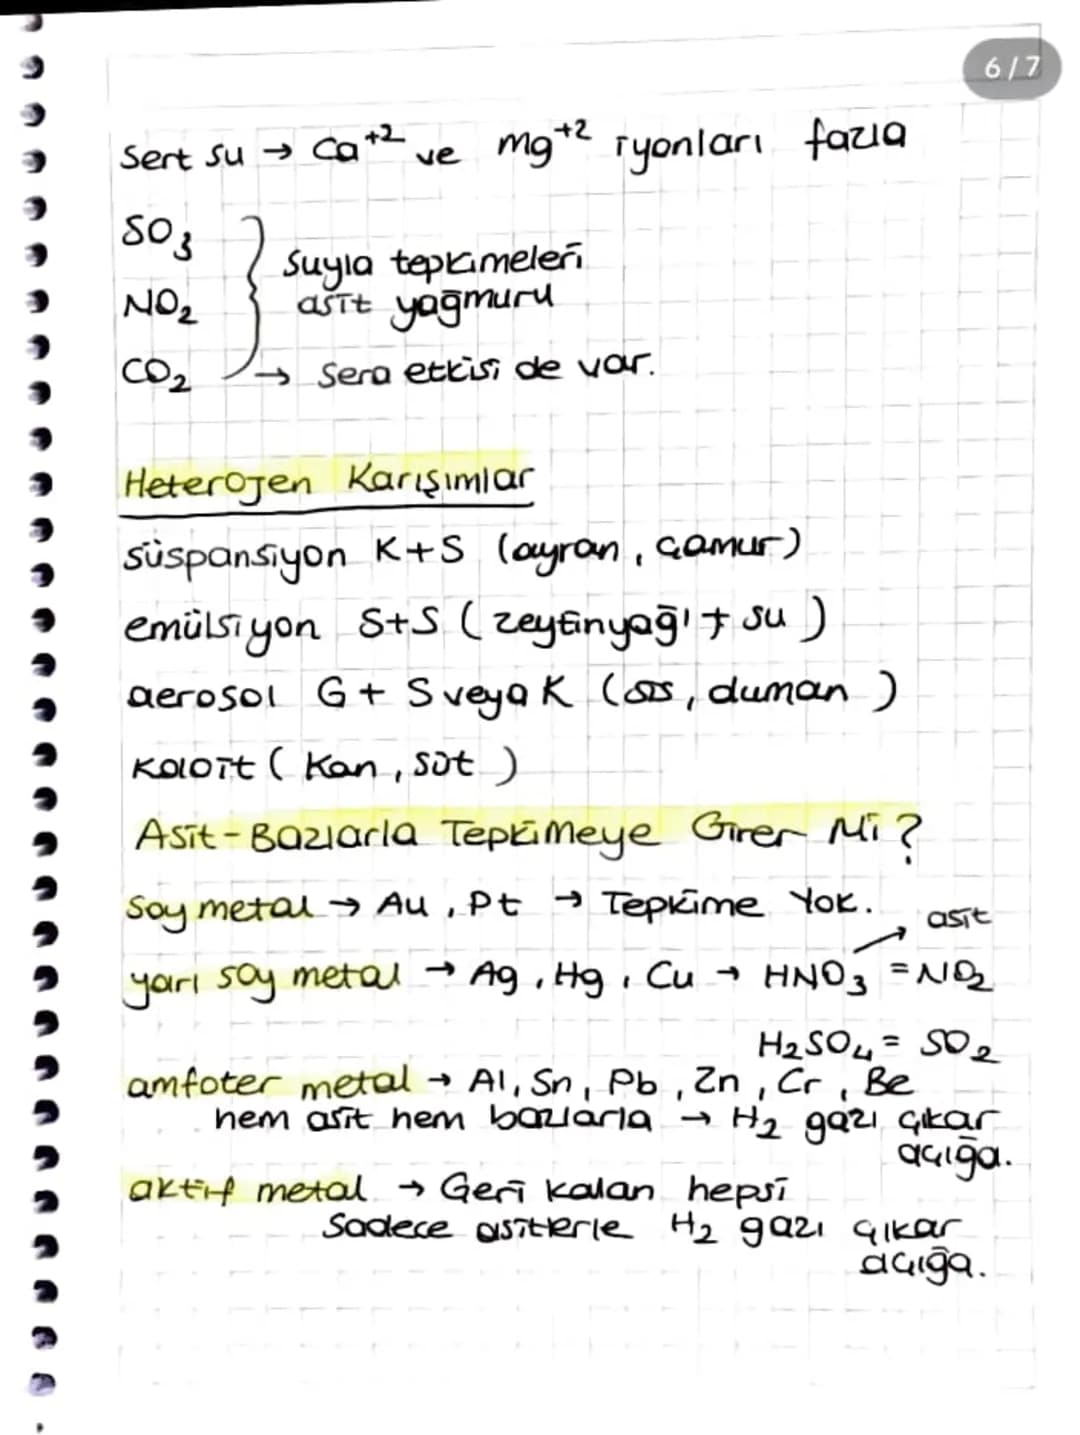 6/7
Sert su → Ca⁺² ve Mg⁺² iyonları fazla
SO₃
Suyla tepkimeleri
NO₂ asit yağmuru
CO₂ → Sera etkisi de var.
Heterojen Karışımlar
süspansiyon K+S (ayran, çamur)
emülsiyon S+S (zeytinyağı + su)
aerosol G+ S veya K (sis, duman)
Koloit (Kan, süt)
Asit-Bazlarla Tepkimeye Girer Mi?
Soy metal → Au, Pt → Tepkime Yok.
→ asit
yarı soy metal → Ag, Hg, Cu → HNO₃ = NO₂
H₂SO₄ = SO₂
amfoter metal → Al, Sn, Pb, Zn, Cr, Be
hem asit hem bazlarla → H₂ gazı çıkar
açığa.
aktif metal → Geri kalan hepsi
Sadece asitlerle H₂ gazı çıkar
açığa.